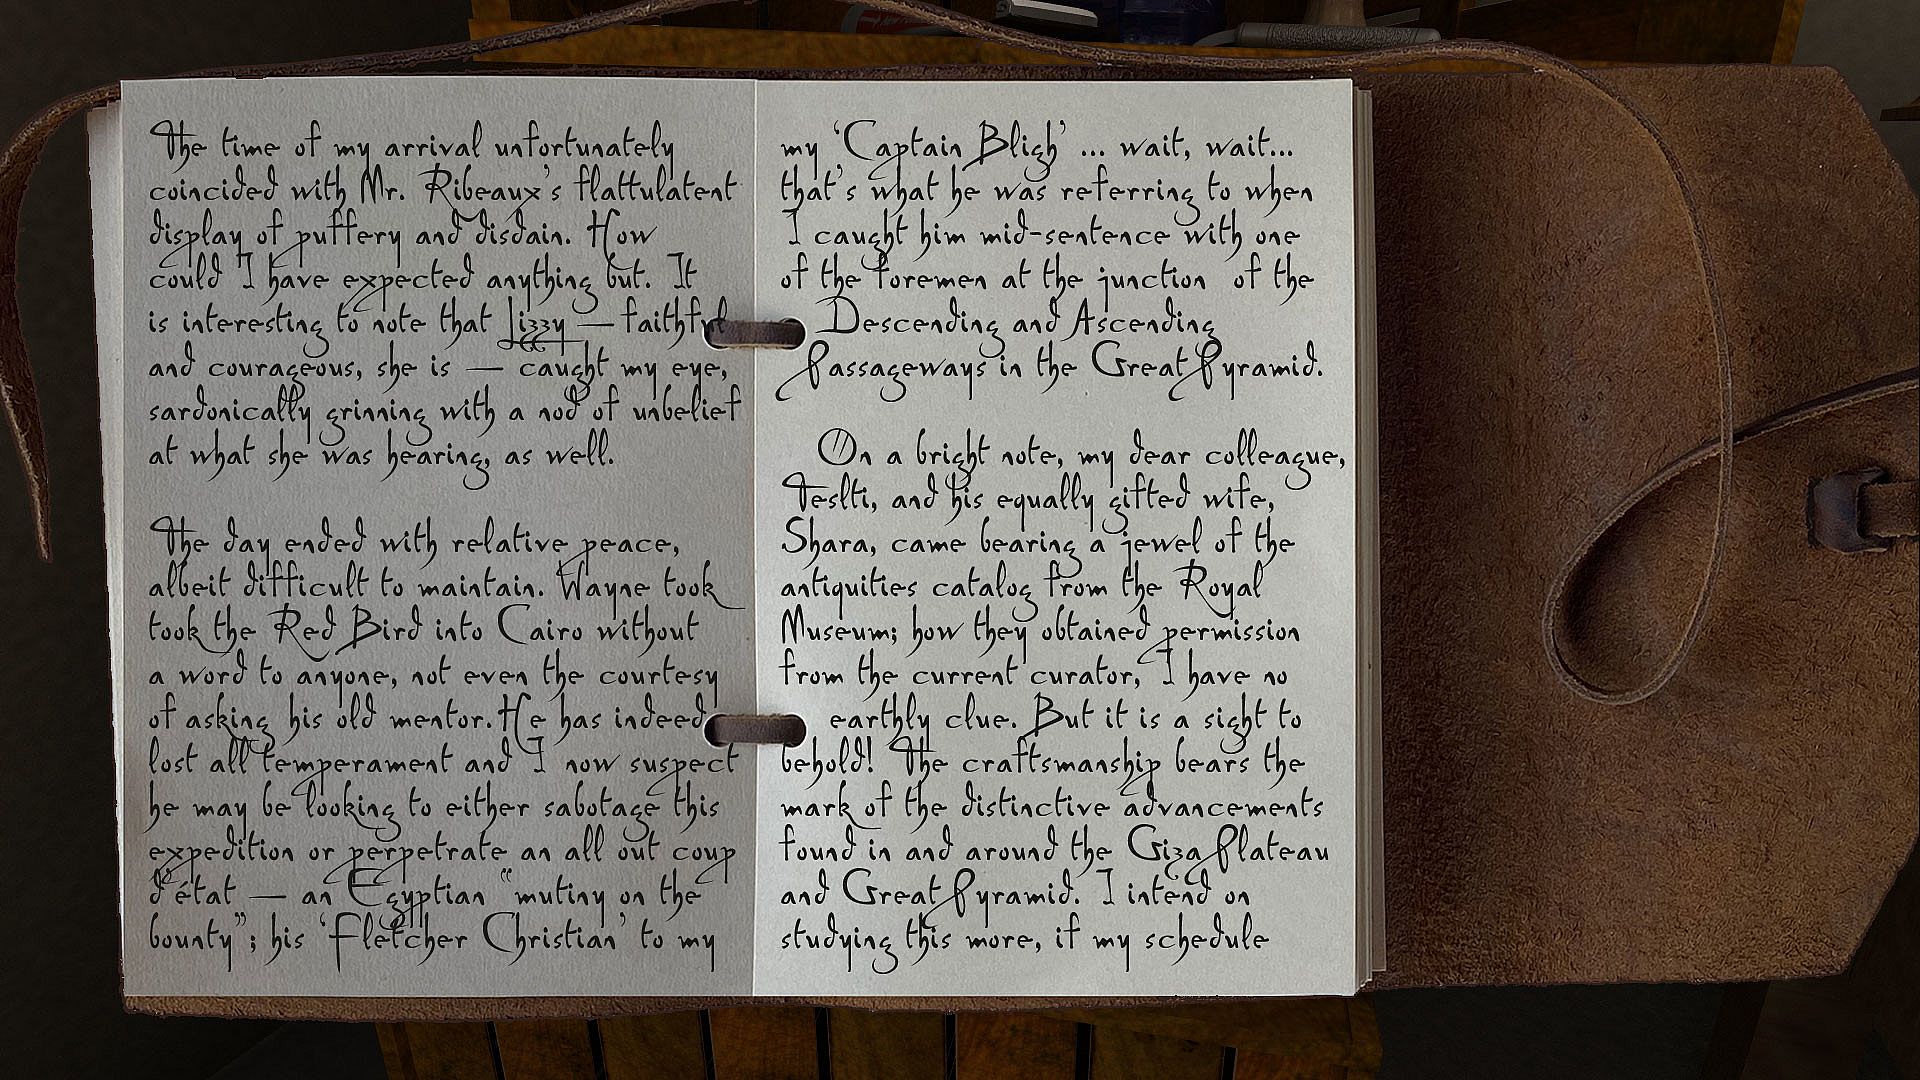 The time of my arrival unfortunately
coincided with Mr. Ribeaux's flattulatent
display of puffery and disdain. How
could I have expected anything but. It
is interesting to note that Lizzy — faithful
and courageous, she is — caught my eye,
sardonically grinning with a nod of unbelief
at what she was hearing, as well.
The day ended with relative peace,
albeit difficult to maintain. Wayne took
took the Red Bird into Cairo without
a word to anyone, not even the courtesy
of asking his old mentor. He has indeed
lost all temperament and I now suspect
he may be looking to either sabotage this
expedition or perpetrate an all out coup
d'état — an Egyptian "mutiny on the
bounty"; his 'Fletcher Christian' to my
my 'Captain Bligh' ... wait, wait...
that's what he was referring to when
I caught him mid-sentence with one
of the foremen at the junction of the
Descending and Ascending
Passageways in the Great Pyramid.
On a bright note, my dear colleague,
Teslti, and his equally gifted wife,
Shara, came bearing a jewel of the
antiquities catalog from the Royal
Museum; how they obtained permission
from the current curator, I have no
earthly clue. But it is a sight to
behold! The craftsmanship bears the
mark of the distinctive advancements
found in and around the Giza Plateau
and Great Pyramid. I intend on
studying this more, if my schedule